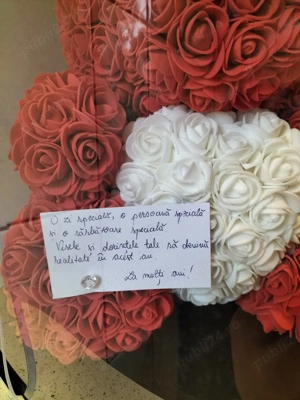 O zi specială, o persoană specială
și o sărbătoare specială.
Visele și dorințele tale să devină
realitate în acest an.
La mulți ani!